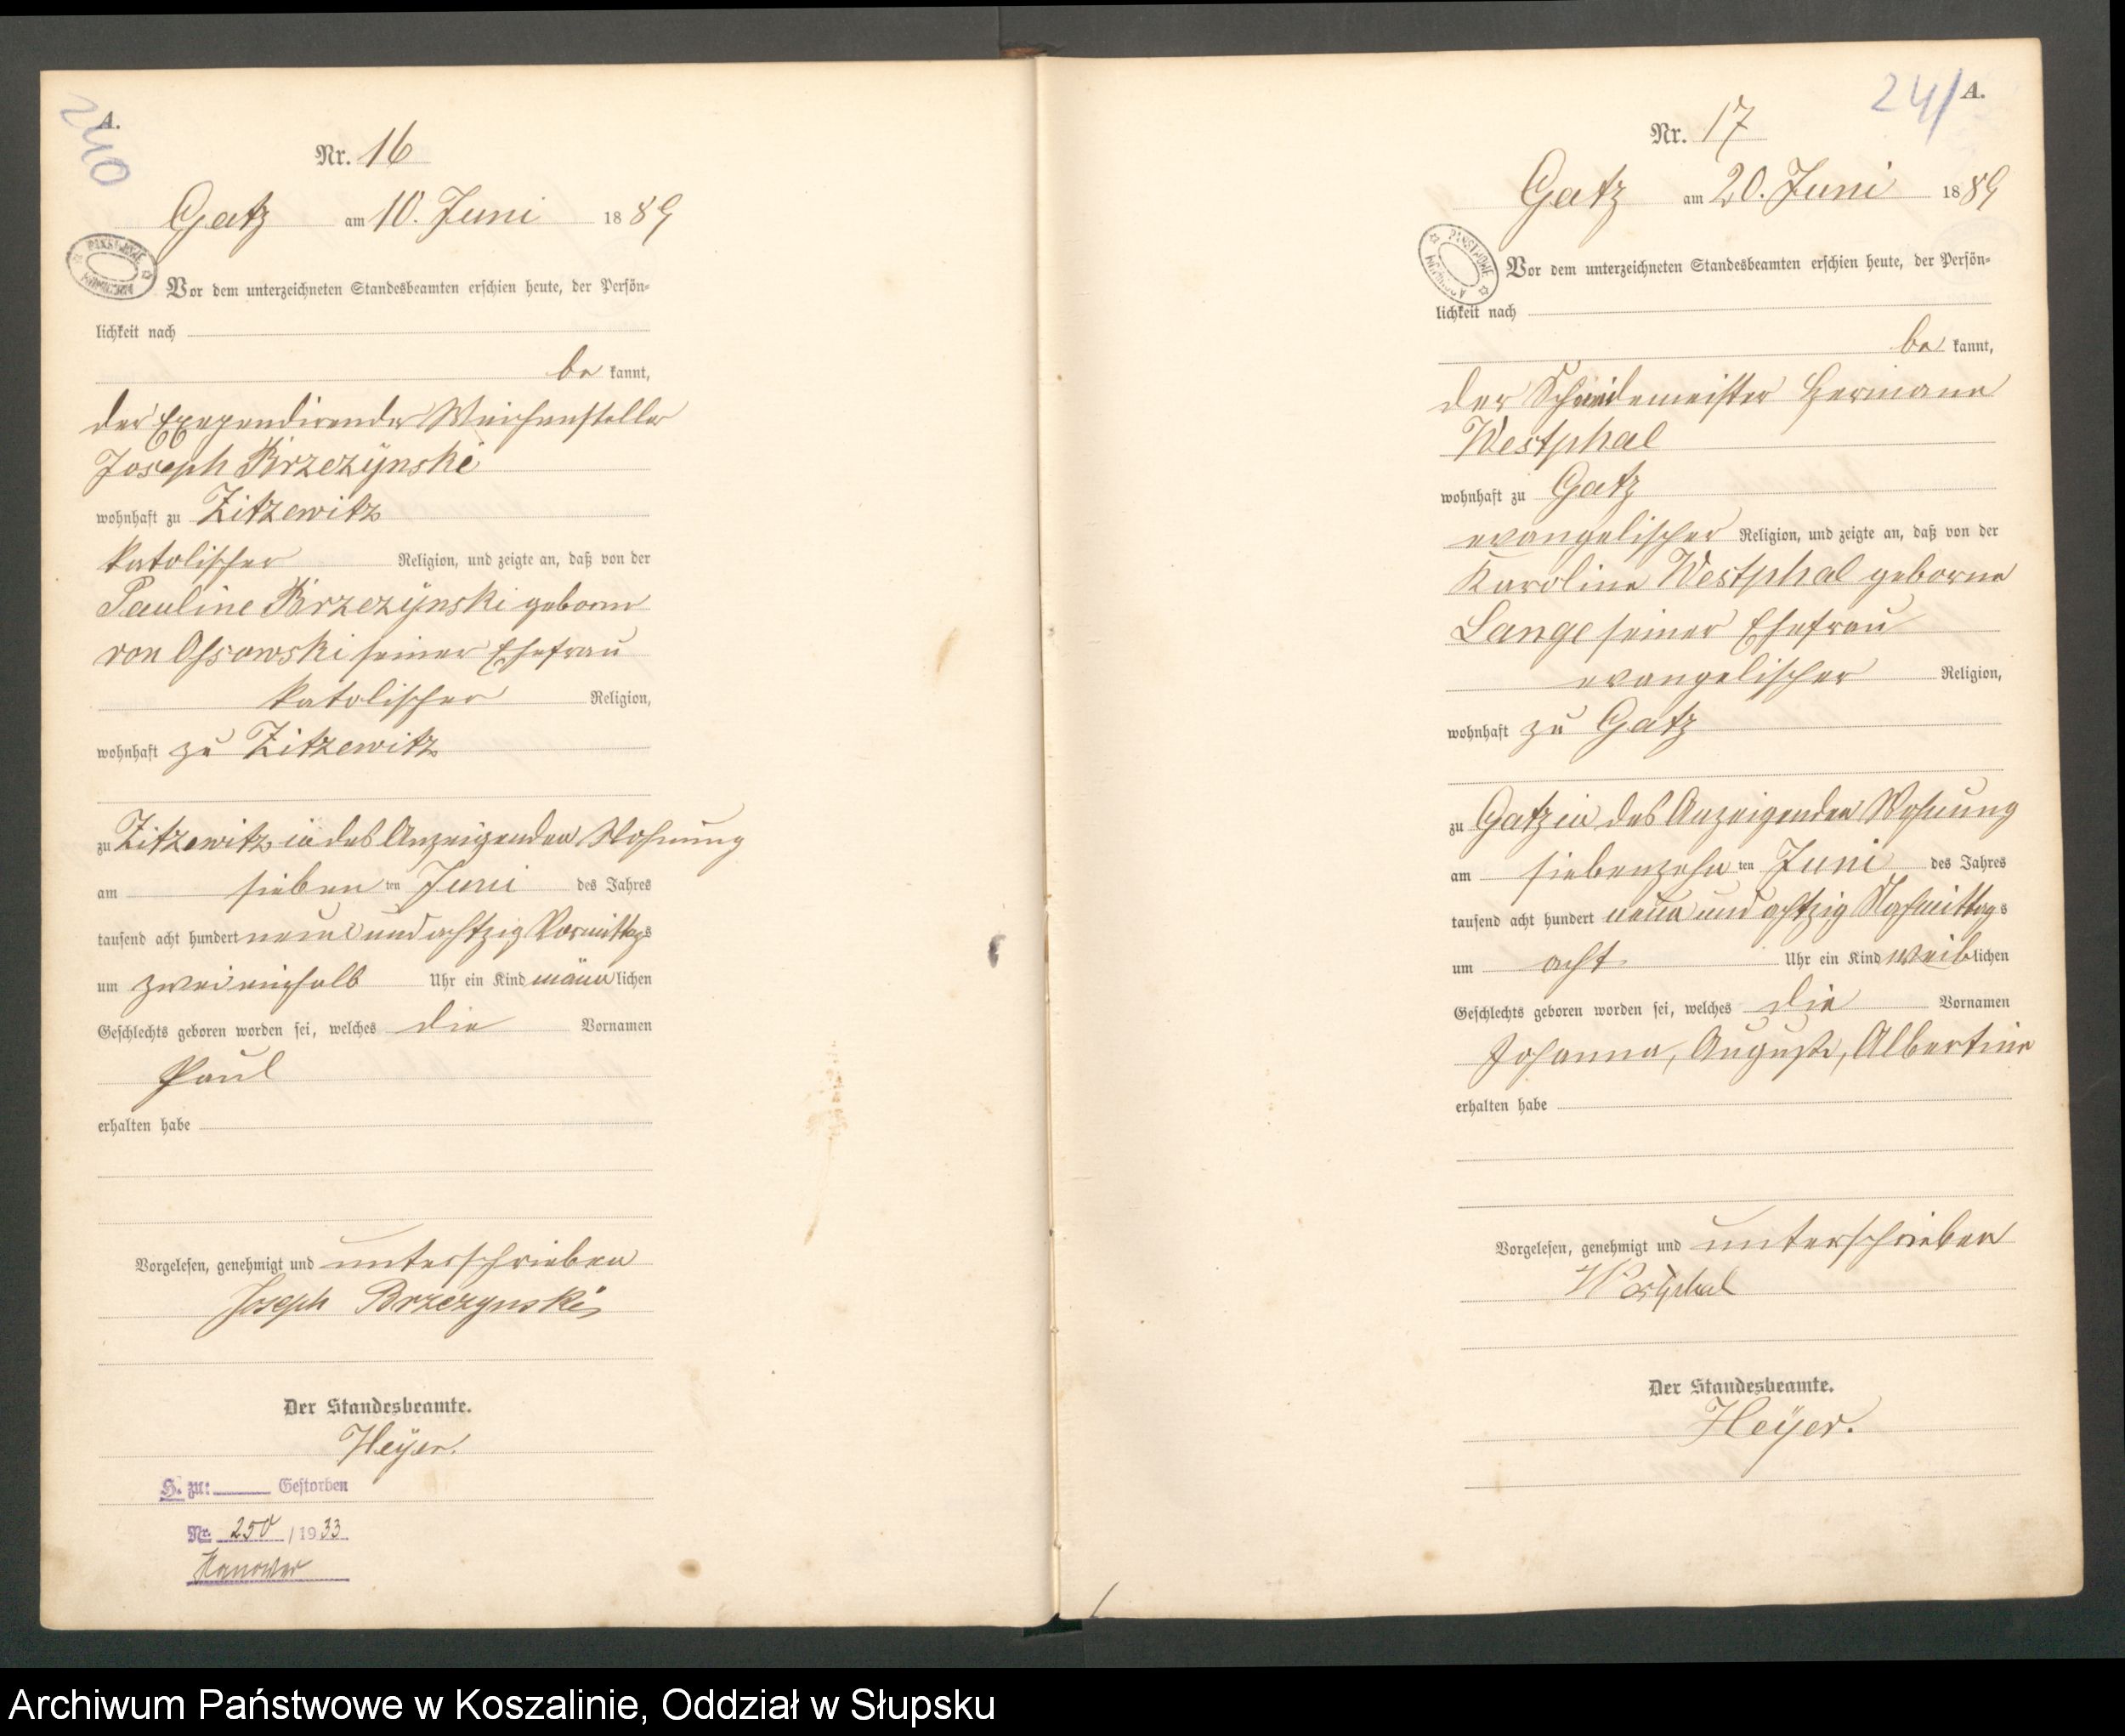 240
A.
Nr. 16
Gatz am 10. Juni 1889
Vor dem unterzeichneten Standesbeamten erschien heute, der Persön-
lichkeit nach
be kannt,
der Weichensteller
Joseph Brzezÿnski
wohnhaft zu Zitzewitz
katolischer Religion, und zeigte an, daß von der
Pauline Brzezÿnski geborne
von Ossowski seiner Ehefrau
katolischer Religion,
wohnhaft zu Zitzewitz
zu Zitzewitz in des Anzeigenden Wohnung
am sieben ten Juni des Jahres
tausend acht hundert neun und achtzig Vormittags
um zwei einhalb Uhr ein Kind männlichen
Geschlechts geboren worden sei, welches die Vornamen
Paul
erhalten habe
Vorgelesen, genehmigt und unterschrieben
Joseph Brzezynski
Der Standesbeamte.
Heÿer.
H. zu: Gestorben
Nr. 250 / 1933
Hanover
241
A.
Nr. 17
Gatz am 20. Juni 1889
Vor dem unterzeichneten Standesbeamten erschien heute, der Persön-
lichkeit nach
be kannt,
der Schmidemeister Hermann
Westphal
wohnhaft zu Gatz
evangelischer Religion, und zeigte an, daß von der
Karoline Westphal geborne
Lange seiner Ehefrau
evangelischer Religion,
wohnhaft zu Gatz
zu Gatz in des Anzeigenden Wohnung
am siebenzehn ten Juni des Jahres
tausend acht hundert neun und achtzig Nachmittags
um acht Uhr ein Kind weiblichen
Geschlechts geboren worden sei, welches die Vornamen
Johanna, Auguste, Albertine
erhalten habe
Vorgelesen, genehmigt und unterschrieben
Westphal
Der Standesbeamte.
Heÿer.
Archiwum Państwowe w Koszalinie, Oddział w Słupsku